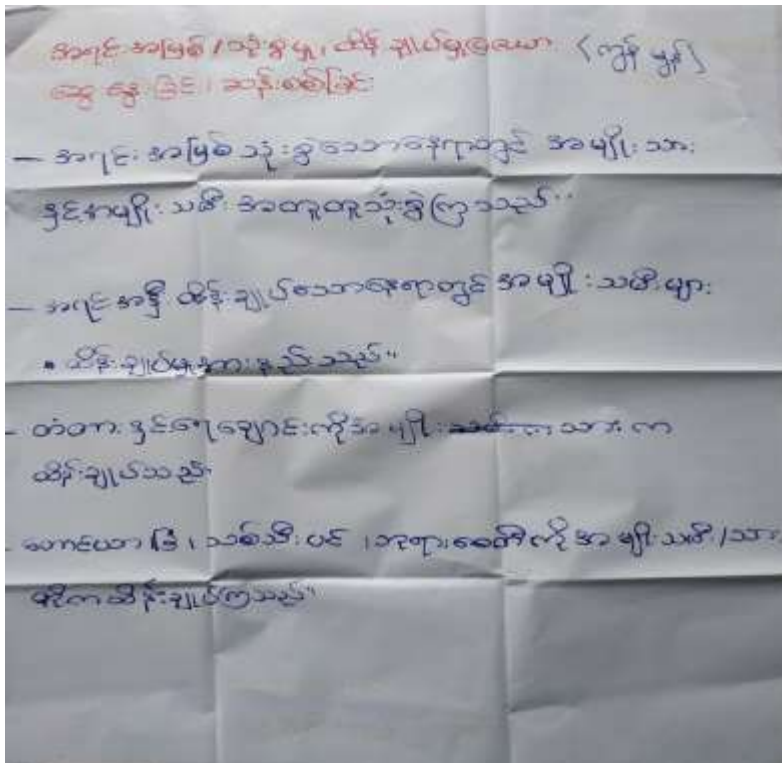 အရင်းအမြစ်/သုံးစွဲမှု၊ ထိန်းချုပ်မှုပြဇယား (ကျွန်းမွန်)
ဆွေးနွေးခြင်း၊ ဆန်းစစ်ခြင်း
– အရင်းအမြစ်သုံးစွဲသောနေရာတွင် အမျိုးသား
နှင့်အမျိုးသမီး အတူတူသုံးစွဲကြသည်။
– အရင်းအနှီး ထိန်းချုပ်သောနေရာတွင် အမျိုးသမီးများ
• ထိန်းချုပ်မှုအားနည်းသည်။
– တံတားနှင့်ရေချောင်းကိုအမျိုး သားက
ထိန်းချုပ်သည်။
– တောင်ယာခြံ၊ သစ်သီးပင်၊ ဘုရားစေတီကိုအမျိုးသမီး/သား
ထိန်းချုပ်ကြသည်။